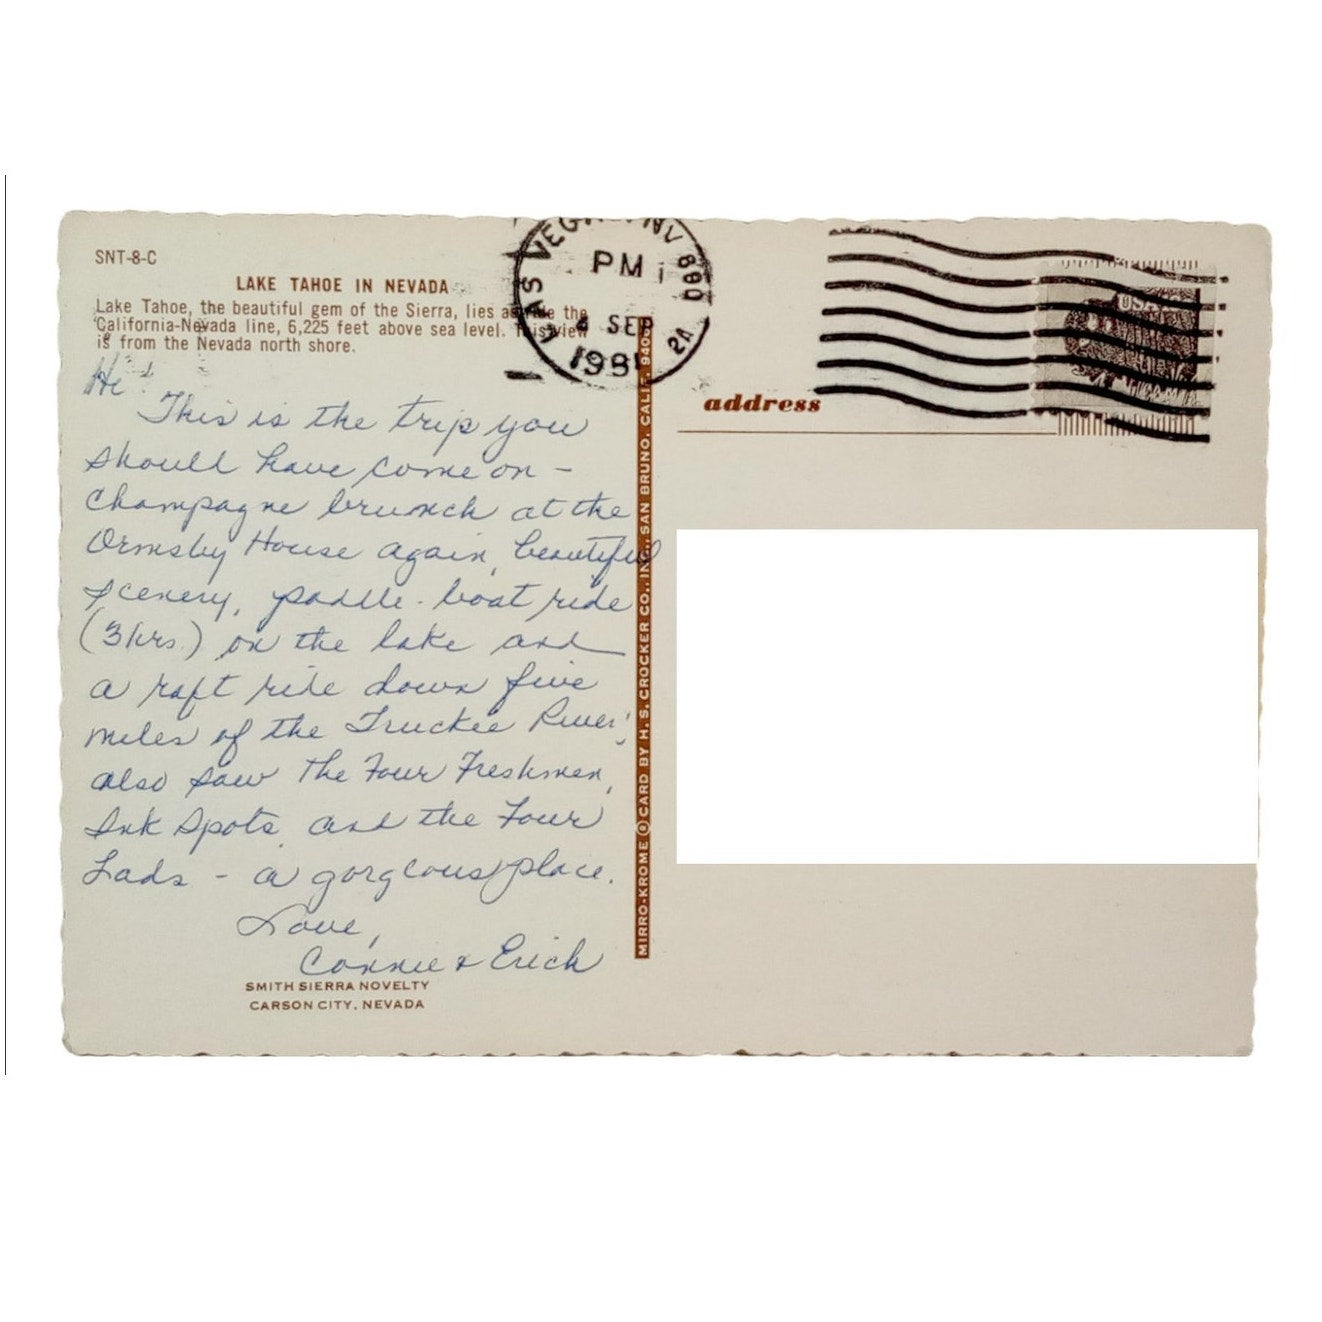 SNT-8-C
LAKE TAHOE IN NEVADA
Lake Tahoe, the beautiful gem of the Sierra, lies astride the
California-Nevada line, 6,225 feet above sea level. This view
is from the Nevada north shore.
Hi
This is the trip you
should have come on -
champagne brunch at the
Ormsby House again, beautiful
scenery, paddle-boat ride
(3 hrs.) on the lake and
a raft ride down five
miles of the Truckee River;
also saw the Four Freshmen,
Ink Spots, and the Four
Lads - a gorgeous place.
Love,
Connie & Erich
SMITH SIERRA NOVELTY
CARSON CITY, NEVADA
MIRRO-KROME ® CARD BY H. S. CROCKER CO., INC., SAN BRUNO, CALIF.
LAS VEGAS, NV 890
PM
4 SEP
1981
2A
address